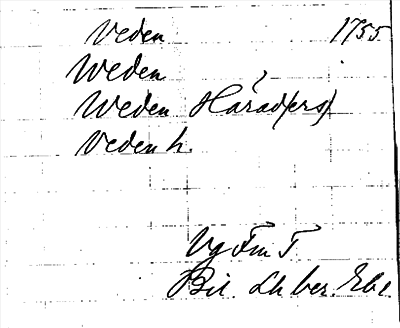 Veden 1755.
Weden
Weden Härad(ers)
Veden h.
Vg Fm T.
Bil. Lh ber.